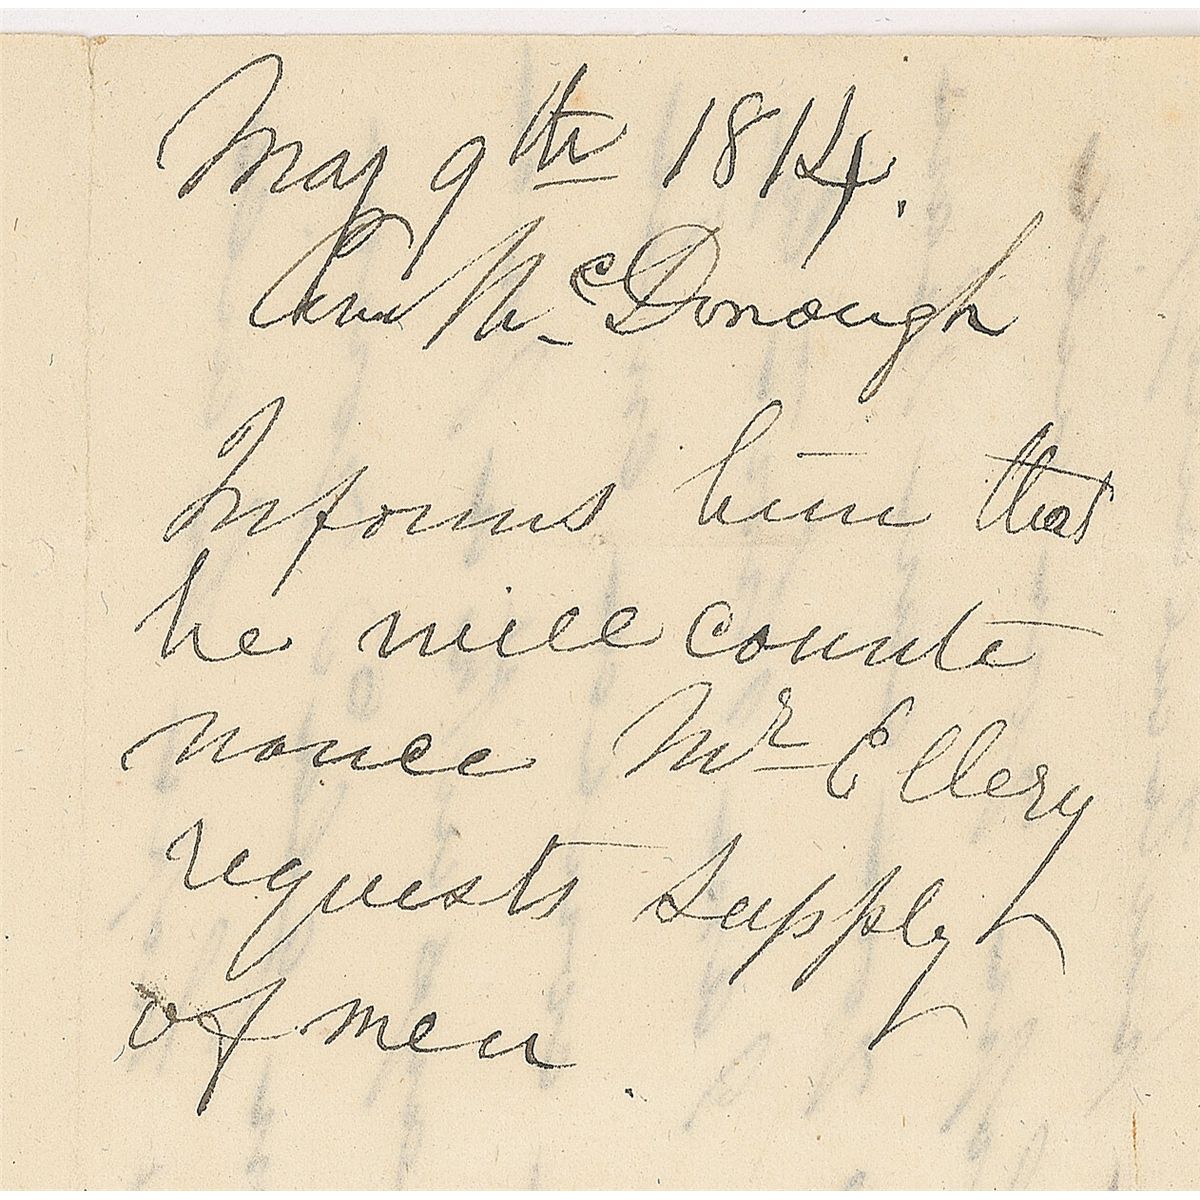 May 9th 1814.
Com McDonough
Informs him that
he will counte
nance Mr Ellery
requests supply
of men.